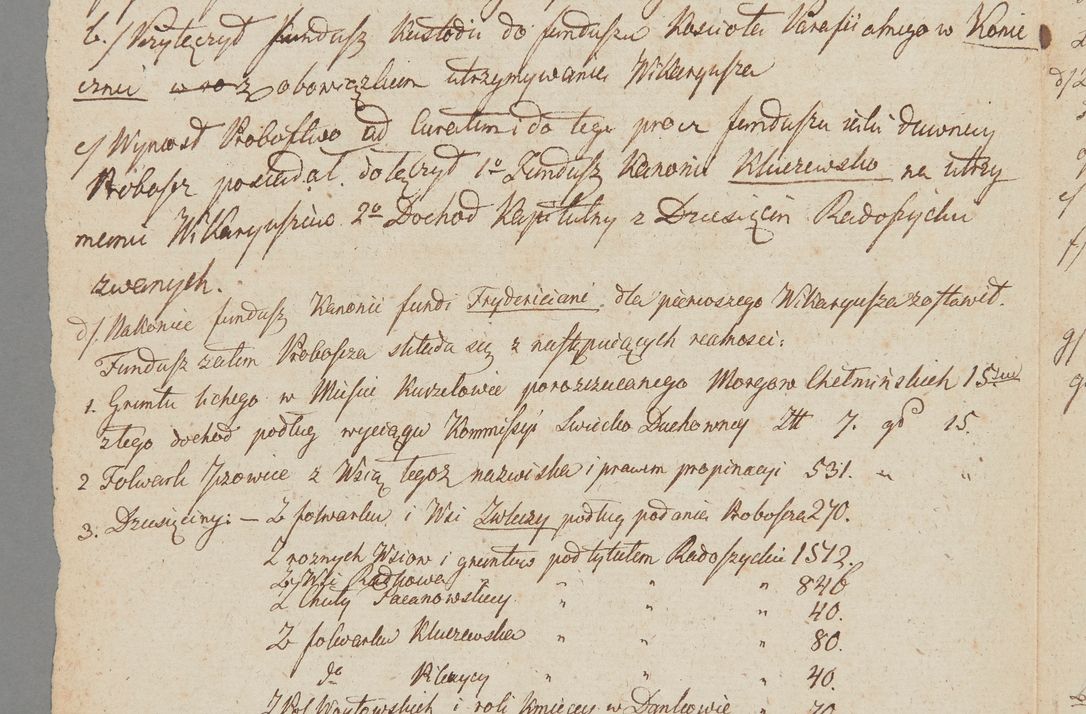 b./ Przyłączył fundusz Kustodii do funduszu Kościoła Parafii alnego w Konie
cznie z obowiązkiem utrzymywania Wikaryusza
c/ Wyniosł Probostwo ad Curatum i do tego procz funduszu iaki dawniey
Probosz posiadał dołączył 1o Fundusz Kanonii Kluczewsko na utrzy
maniu Wikaryuszow 2o Dochod Kapitulny z Dziesięcin Radoszychie
zwanych.
d/. Nakoniec fundusz Kanonii fundi Frydericiani dla pierwszego Wikaryusza zostawił.
Fundusz zatem Probosza składa się z następuiących realnosci:
1. Gruntu lichego w Mieście Kurzelowie porozrzucanego Morgow Chełmińskich 15
z tego dochod podług wyciągu Kommissyi Swiecko Duchowney Zł 7. gr 15.
2 Folwark Jzowice z Wsią tegoż nazwiska i prawem propinacyi 531. " "
3. Dziesięciny: — Z folwarku i Wsi podług podania Probosza 270.
Z roznych Wsiow i gruntow pod tytułem Radoszyckie 1512.
Z Wsi Radkowa 846
Z Chuty " " " 40.
Z folwarku Kluczewska " " " 80.
do " " " 40.
i roli Kmiecey w Dankowie " 70